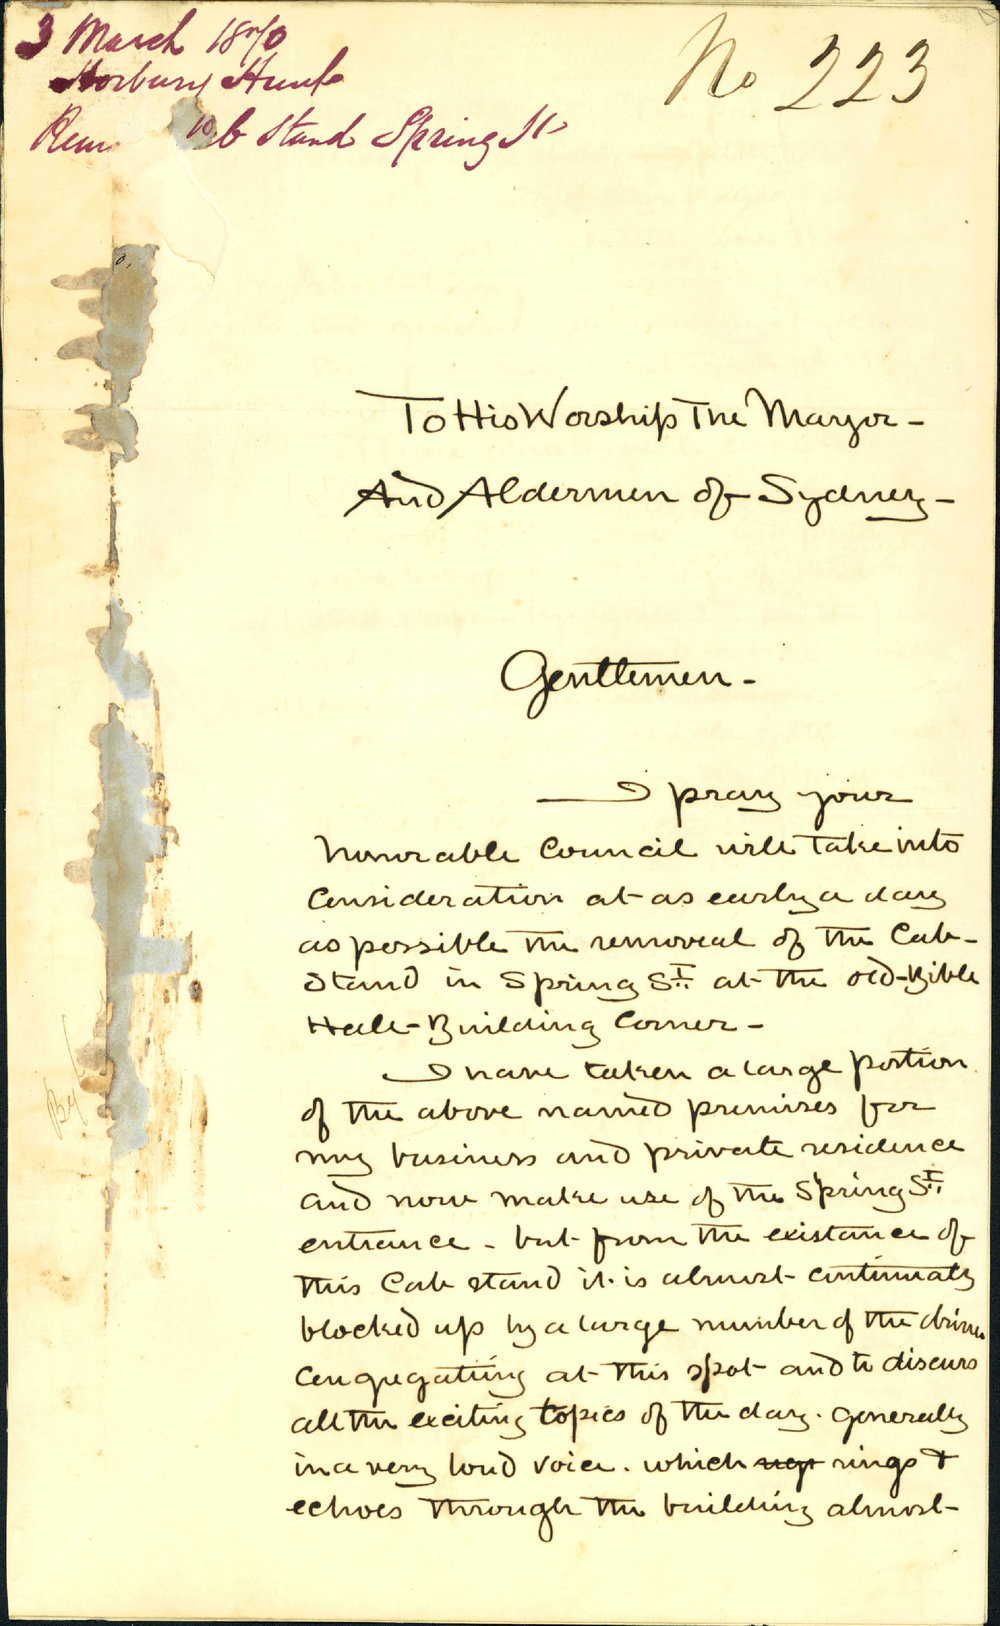 3 March 1870
Horbury Hunt
Rem Cab Stand Spring St
No 223
To His Worship The Mayor -
And Aldermen of Sydney -
Gentlemen -
I pray your
honorable Council will take into
Consideration at as early a day
as possible the removal of the Cab-
Stand in Spring St. at the old-Bible
Hall-Building Corner -
I have taken a large portion
of the above named premises for
my business and private residence
and now make use of the Spring St.
entrance - but from the existance of
this Cab stand it is almost continualy
blocked up by a large number of the drivers
Congregating at this spot and to discuss
all the exciting topics of the day. generally
in a very loud voice. which rings &
echoes through the building almost-